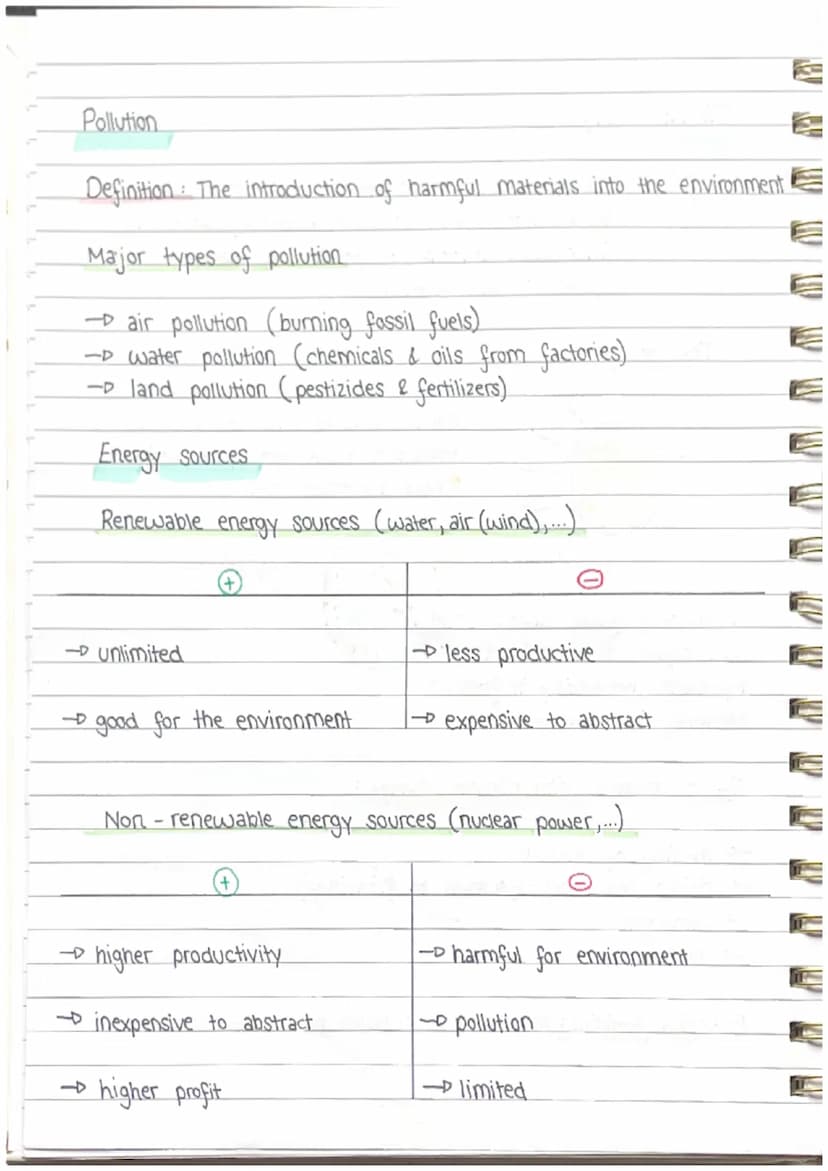 Pollution
Definition: The introduction of harmful materials into the environment
Major types of pollution
→ air pollution (burning fossil fuels)
→ water pollution (chemicals & oils from factories)
→ land pollution (pestizides & fertilizers)
Energy sources
Renewable energy sources (water, air (wind),...)
+ -
→ unlimited → less productive
→ good for the environment → expensive to abstract
Non-renewable energy sources (nuclear power,...)
+ -
→ higher productivity → harmful for environment
→ inexpensive to abstract → pollution
→ higher profit → limited